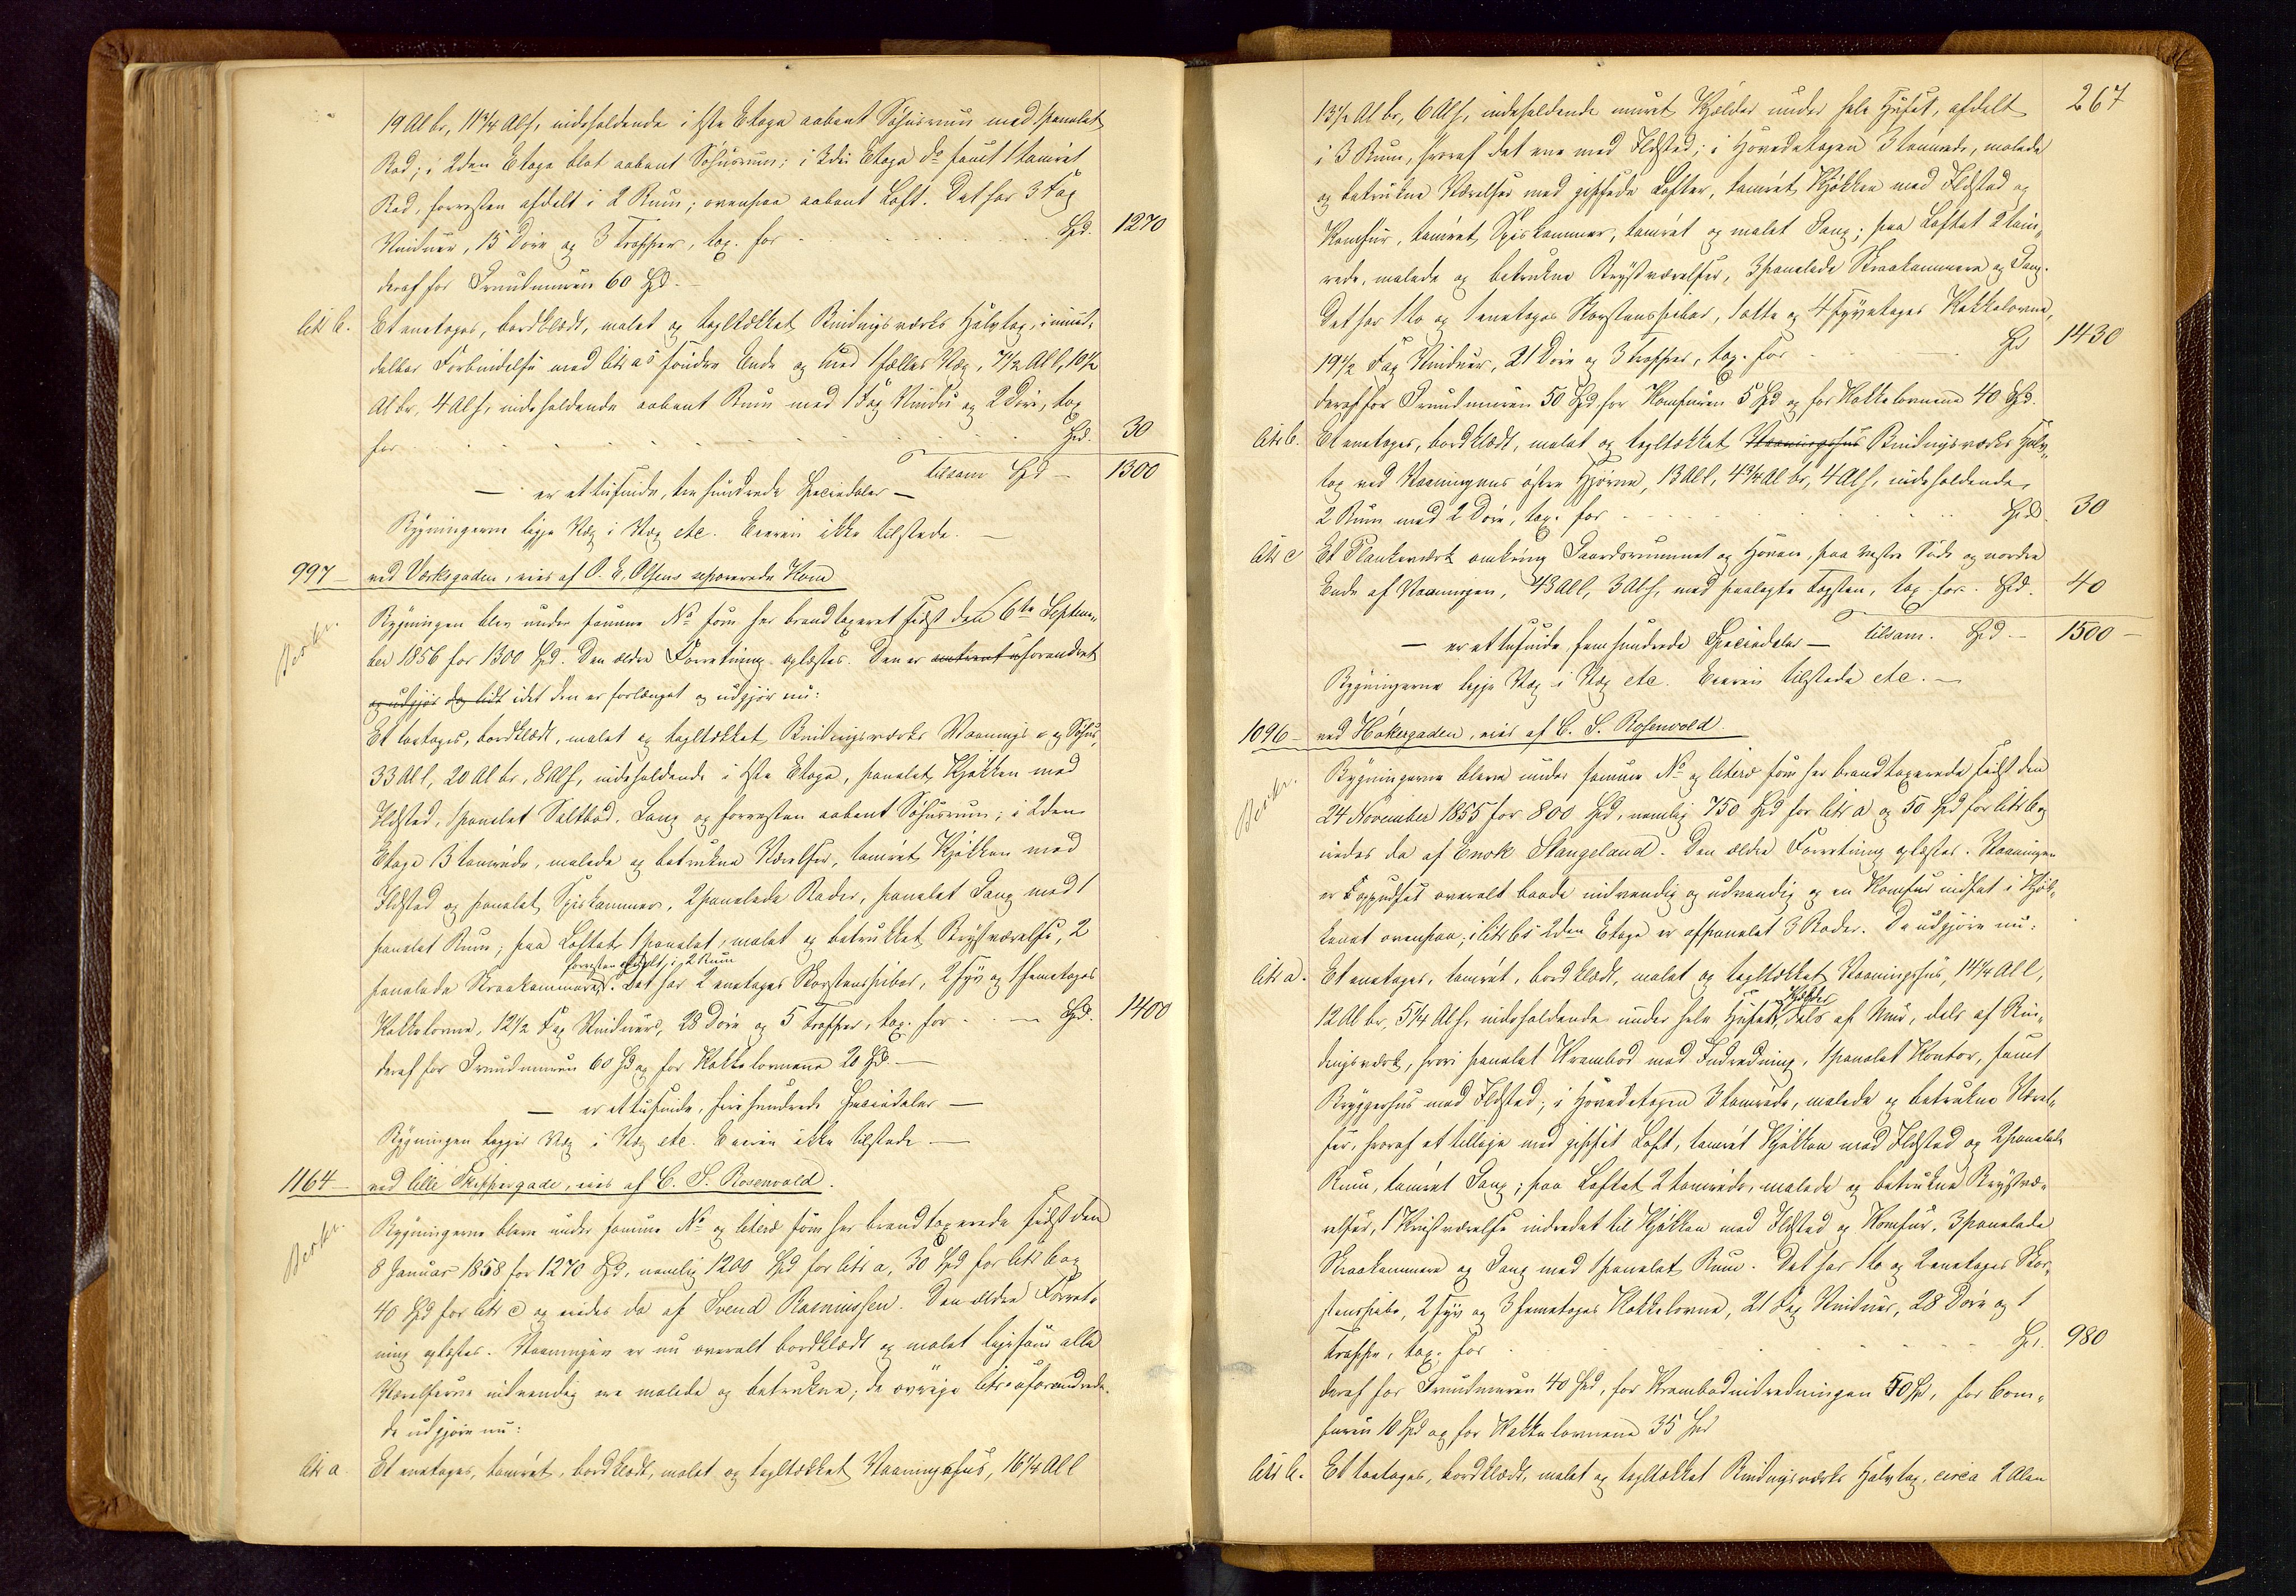 19 Al br, 11 3/4 Al h, indeholdende i 1ste Etage aabent Söhuusrum med panelet
Bod; i 2den Etage blot aabent Söhusrum; i 3die Etage do samt 1 tömret
Bod, forresten afdelt i 2 Rum; ovenpaa aabent Loft. Det har 3 Fag
Vinduer, 15 Döre og 3 Trapper, tax. for . . . Spd. 1270
deraf for Grundmuren 60 Spd. —
Litr b. Et enetages, bordklædt, malet og tagltækket Bindingsværks Halvtag, i umid-
delbar Forbindelse med Litr a's söndre Ende og med fælles Væg, 7 1/2 Al l, 10 1/2
Al br, 4 Al h, indeholdende aabent Rum med 1 Fag Vindu og 2 Döre, tax
for . . . Spd. 30
tilsam Spd — 1300
— er ettusinde, tre hundrede Speciedaler —
Bygningerne ligge Væg i Væg etc. Eieren ikke tilstede. —
997 — ved Værksgaden, eies af P. E. Olsens separerede Kone
Beskr. Bygningen blev under samme No som her brandtaxeret sidst den 6te Septem-
ber 1856 for 1300 Spd. Den ældre Forretning oplæstes. Den er omtrent uforandret
og udgjör dog lidt idet den er forlænget og udgjör nu:
Et toetages, bordklædt, malet og tagltækket Bindingsværks Vaanings- og Söhus,
33 Al l, 20 Al br, 8 Al h, indeholdende i 1ste Etage, panelet Kjökken med
Ildsted, 1 panelet Saltbod, Gang og forresten aabent Söhusrum; i 2den
Etage 3 tömrede, malede og betrukne Værelser, tömret Kjökken med
Ildsted og panelet Spiskammer, 2 panelede Boder, panelet Gang med 1
panelet Rum; paa Loftet 1 panelet, malet og betrukket Brystværelse, 2
forresten afdelt i 2 Rum
panelede Skraakammere. Det har 2 enetages Skorstenspiber, 2 syv og 1 femetages
Kakkelovne, 12 1/2 Fag Vinduer, 28 Döre og 5 Trapper, tax. for . . — Spd. 1400
deraf for Grundmuren 60 Spd og for Kakkelovnene 20 Spd. —
— er ettusinde, firehundrede Speciedaler —
Bygningen ligger Væg i Væg etc. Eieren ikke tilstede. —
1164 — ved lille Skippergade, eies af C. S. Rosenvold.
Beskr. Bygningerne bleve under samme No og Litera som her brandtaxerede sidst den
8 Januar 1858 for 1270 Spd, nemlig 1200 Spd for Litr a, 30 Spd for Litr b og
40 Spd for Litr c og eiedes da af Svend Rasmussen. Den ældre Forret-
ning oplæstes. Vaaningen er nu overalt bordklædt og malet ligesom alle
Værelserne indvendig ere malede og betrukne; de övrige Litr. uforandrede.
de udgjöre nu:
Litr a. Et enetages, tömret, bordklædt, malet og tagltækket Vaaningshus, 16 1/4 Al l
267
13 1/2 Al br, 6 Al h, indeholdende muret Kjælder under hele Huset, afdelt
i 3 Rum, hvoraf det ene med Ildsted; i Hovedetagen 3 tömrede, malede
og betrukne Værelser med gipsede Lofter, tömret Kjökken med Ildsted og
Komfur, tömret Spiskammer, tömret og malet Gang; paa Loftet 2 töm-
rede, malede og betrukne Brystværelser, 3 panelede Skraakammere og Gang.
Det har 1 to og 1 enetages Skorstenspiber, 1 otte og 4 syvetages Kakkelovne,
19 1/2 Fag Vinduer, 21 Döre og 3 Trapper, tax. for . . . Spd 1430
deraf for Grundmuren 50 Spd for Komfuren 5 Spd og for Kakkelovnene 40 Spd.
Litr b. Et enetages, bordklædt, malet og tagltækket Vaaningshus Bindingsværks Halv-
tag ved Vaaningens östre Hjörne, 13 Al l, 4 3/4 Al br, 4 Al h, indeholdende
2 Rum med 2 Döre, tax. for . . . Spd. 30
Litr c Et Plankeværk omkring Gaardsrummet og Haven, paa vestre Side og nordre
Ende af Vaaningen, 43 Al l, 3 Al h, med paalagte Tagsten, tax for. Spd. 40
— er ettusinde, femhundrede Speciedaler — tilsam. Spd. — 1500 —
Bygningerne ligge Væg i Væg etc. Eieren tilstede etc. —
1096 — ved Hökergaden, eies af C. S. Rosenvold.
Beskr. Bygningerne bleve under samme No og Litera som her brandtaxerede sidst den
24 November 1855 for 800 Spd, nemlig 750 Spd for Litr a og 50 Spd for Litr b og
eiedes da af Enok Stangeland. Den ældre Forretning oplæstes. Vaaningen
er oppudset overalt baade indvendig og udvendig og en Komfur indsat i Kjök-
kenet ovenpaa; i Litr b's 2den Etage er afpanelet 3 Boder. De udgjöre nu:
Litr a. Et enetages, tömret, bordklædt, malet og tagltækket Vaaningshus, 14 1/4 Al l,
Kjælder
12 Al br, 5 1/4 Al h, indeholdende under hele Huset, dels af Mur, dels af Bin-
dingsværk, hvori panelet Krambod med Indredning, 1 panelet Kontor, samt
Bryggerhus med Ildsted; i Hovedetagen 3 tömrede, malede og betrukne Værel-
ser, hvoraf et tillige med gipset Loft, tömret Kjökken med Ildsted og 2 panelede
Rum, tömret Gang; paa Loftet 2 tömrede, malede og betrukne Brystvæ-
relser, 1 Kvistværelse indredet til Kjökken med Ildsted og Komfur, 3 panelede
Skraakammere og Gang med 1 panelet Rum. Det har 1 to og 2 enetages Skor-
stenspiber, 2 syv og 3 femetages Kakkelovne, 21 Fag Vinduer, 28 Döre og 1
Trappe, tax. for . . . Spd. 980
deraf for Grundmuren 40 Spd, for Krambodindredningen 50 Spd, for Com-
furen 10 Spd og for Kakkelovnene 35 Spd
Litr b. Et toetages, bordklædt, malet og tagltækket Bindingsværks Halvtag, circa 2 Alen